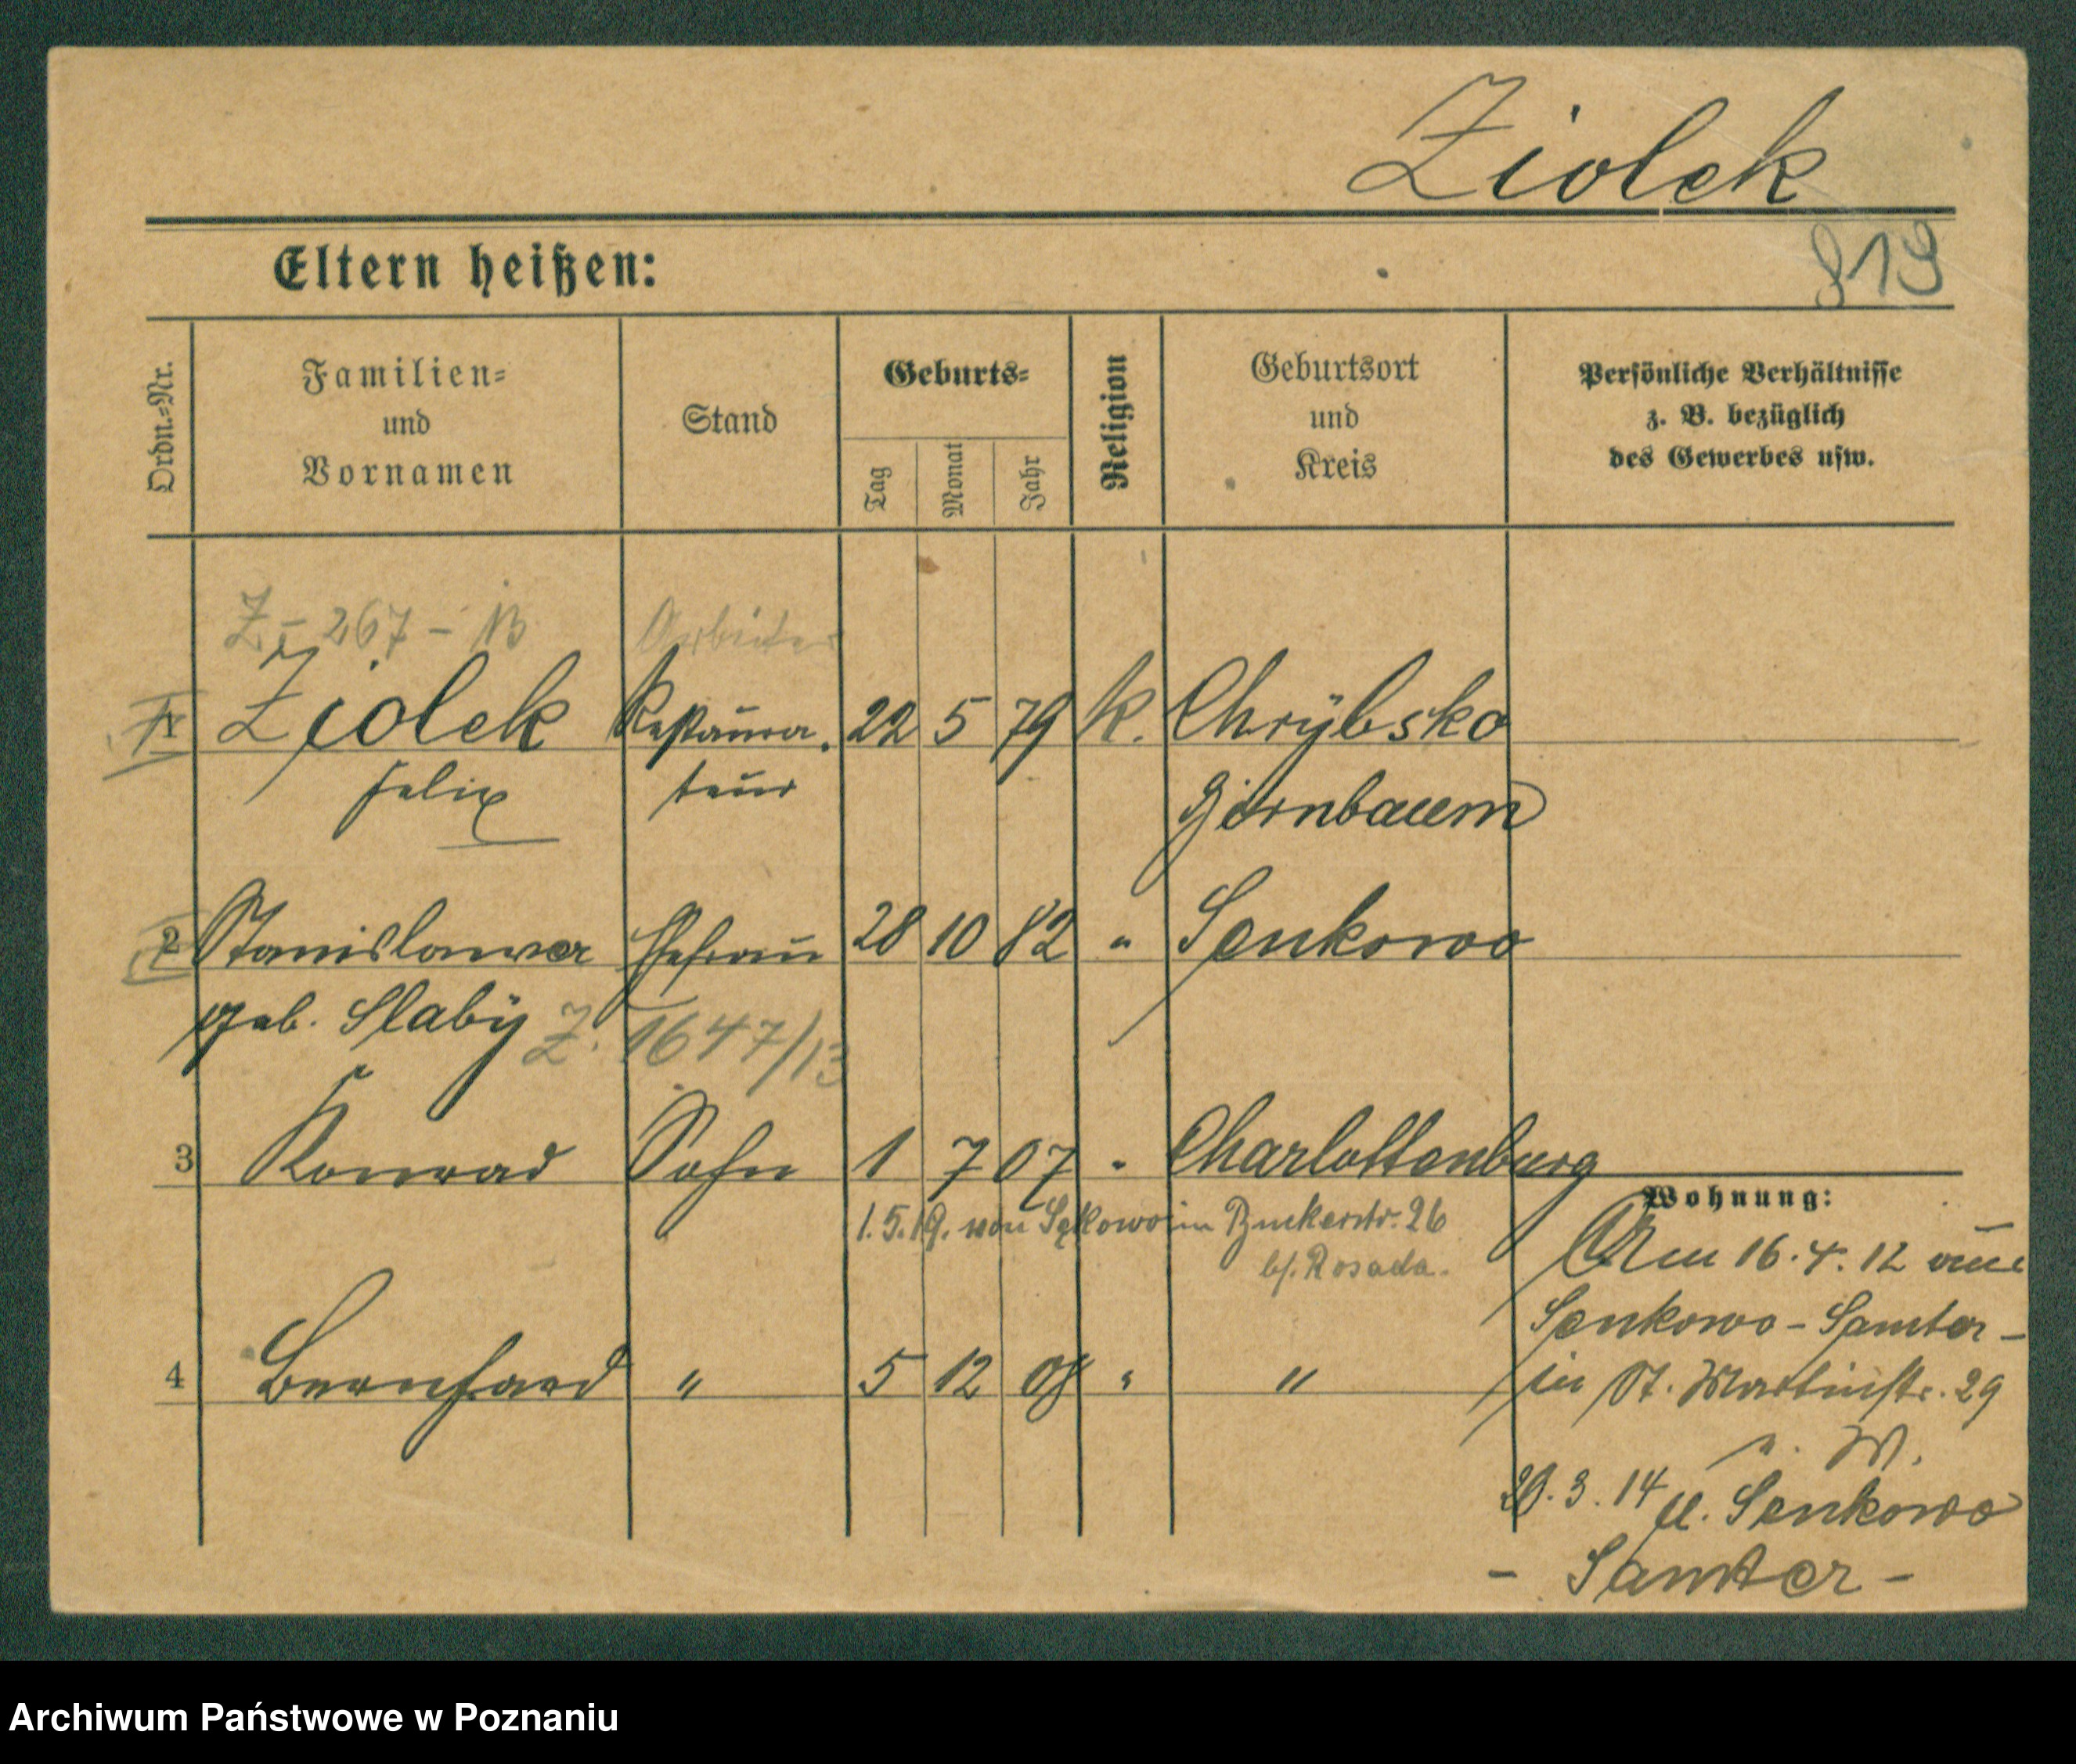 Ziolek
819
Eltern heißen:
Ordn.=Nr.
Familien=
und
Vornamen
Stand
Geburts=
Tag
Monat
Jahr
Religion
Geburtsort
und
Kreis
Persönliche Verhältnisse
z. B. bezüglich
des Gewerbes usw.
Z. 267 - 13 Arbeiter
1 Ziolek Restaura. 22 5 79 k. Chrÿbsko
Felix teur Birnbaum
2 Stanislawa Ehefrau 28 10 82 " Senkowo
geb. Slabÿ Z. 1647/13
3 Konrad Sohn 1 7 07 " Charlottenburg
1.5.19. von Sękowo in Bukerstr. 26
b/. Rosada.
4 Bernhard " 5 12 08 " "
Wohnung:
Am 16.4.12 aus
Senkowo - Samter -
in St. Martinstr. 29
20.3.14 n. Senkowo
- Samter -
Archiwum Państwowe w Poznaniu